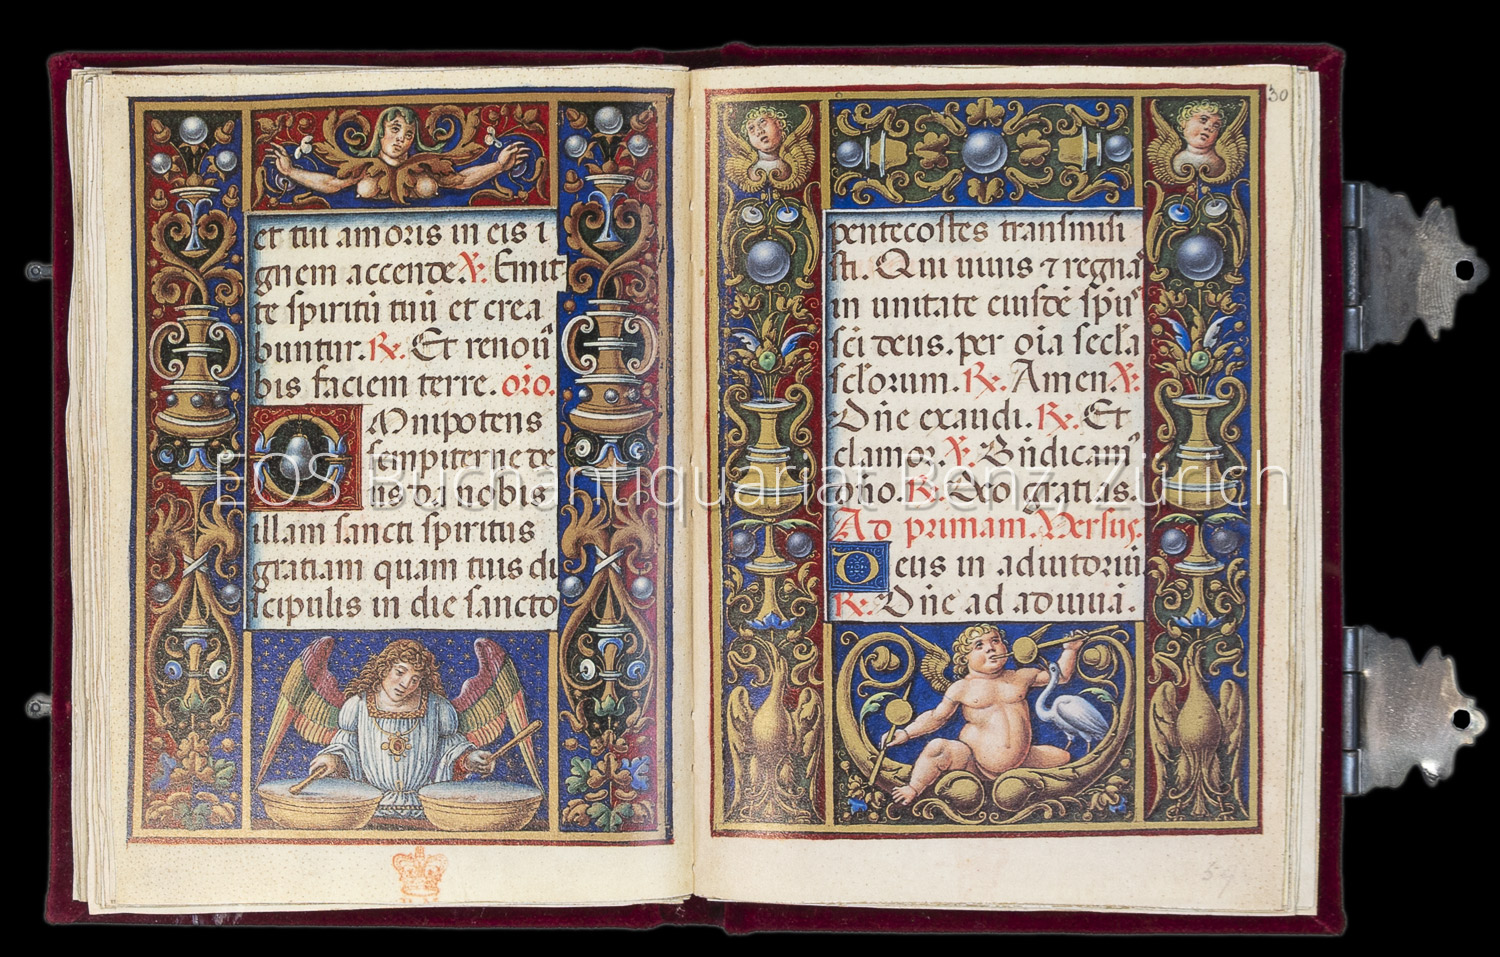 et tui amoris in eis i
gnem accende V. Emit
te spiritu tuu et crea
buntur. R. Et renoũ
bis faciem terre. oro.
Omnipotens
sempiterne de
us da nobis
illam sancti spiritus
gratiam quam tuis di
scipulis in die sancto
30
pentecostes transmisi
sti. Qui uiuis ⁊ regna
in unitate eiusdē spūs
sci deus. per oīa secl̄a
scl̄orum. R. Amen V.
Dn̄e exaudi. R. Et
clamor. V. Bn̄dicam
dn̄o. R. Deo gratias.
Ad primam. Versus.
Deus in adiutoriū
R. Dn̄e ad adiuuā.
59
EOS Buchantiquariat Benz, Zürich